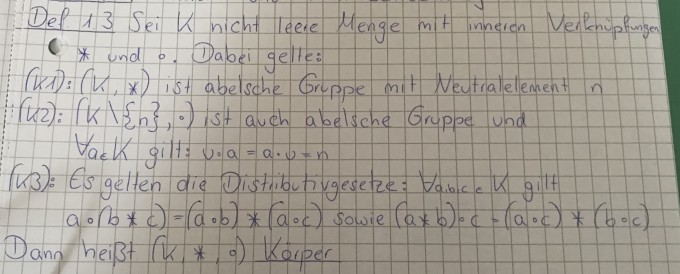 Def 1.3 Sei K nicht leere Menge mit inneren Verknüpfungen
* und ∘. Dabei gelte:
(K1): (K, *) ist abelsche Gruppe mit Neutralelement n
(K2): (K \ {n}, ∘) ist auch abelsche Gruppe und
∀a∈K gilt: n∘a = a∘n = n
(K3): Es gelten die Distributivgesetze: ∀a,b,c∈K gilt
a∘(b * c) = (a∘b) * (a∘c) sowie (a*b)∘c = (a∘c) * (b∘c)
Dann heißt (K, *, ∘) Körper